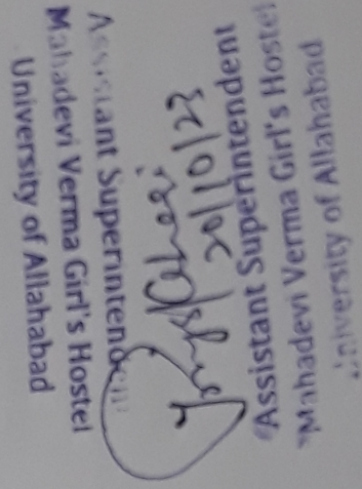 Assistant Superintendent
Mahadevi Verma Girl's Hostel
University of Allahabad
30/10/23
Assistant Superintendent
Mahadevi Verma Girl's Hostel
University of Allahabad